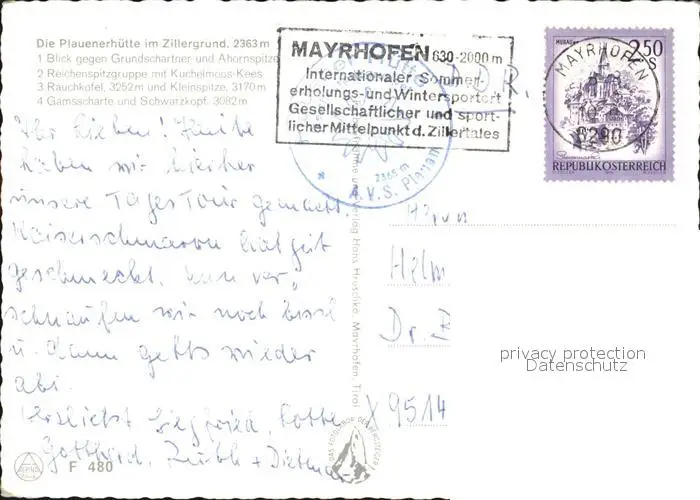 Die Plauenerhütte im Zillergrund. 2363 m
1 Blick gegen Grundschartner und Ahornspitze
2 Reichenspitzgruppe mit Kuchelmoos-Kees
3 Rauchkofel, 3252 m und Kleinspitze, 3170 m
4 Gamsscharte und Schwarzkopf. 3082 m
MAYRHOFEN 630-2000 m
Internationaler Sommer-
erholungs- und Wintersportort
Gesellschaftlicher und sport-
licher Mittelpunkt d. Zillertales
MAYRHOFEN
6290
MURAU
2.50
S
Steiermark
REPUBLIK ÖSTERREICH
2365 m
Ihr Lieben! Heute
haben wir hierher
unsere Tages Tour gemacht.
Kaiserschmarrn hat gut
geschmeckt. Nun ver-
schnaufen wir noch bissl
u. dann gehts wieder
abi.
Herzlichst Siegfried, Lotte
Gotthard, + Dietmar
Verlag Hans Hruschka, Mayrhofen, Tirol
Helm
Dr. B
X 9514
F 480
privacy protection
Datenschutz